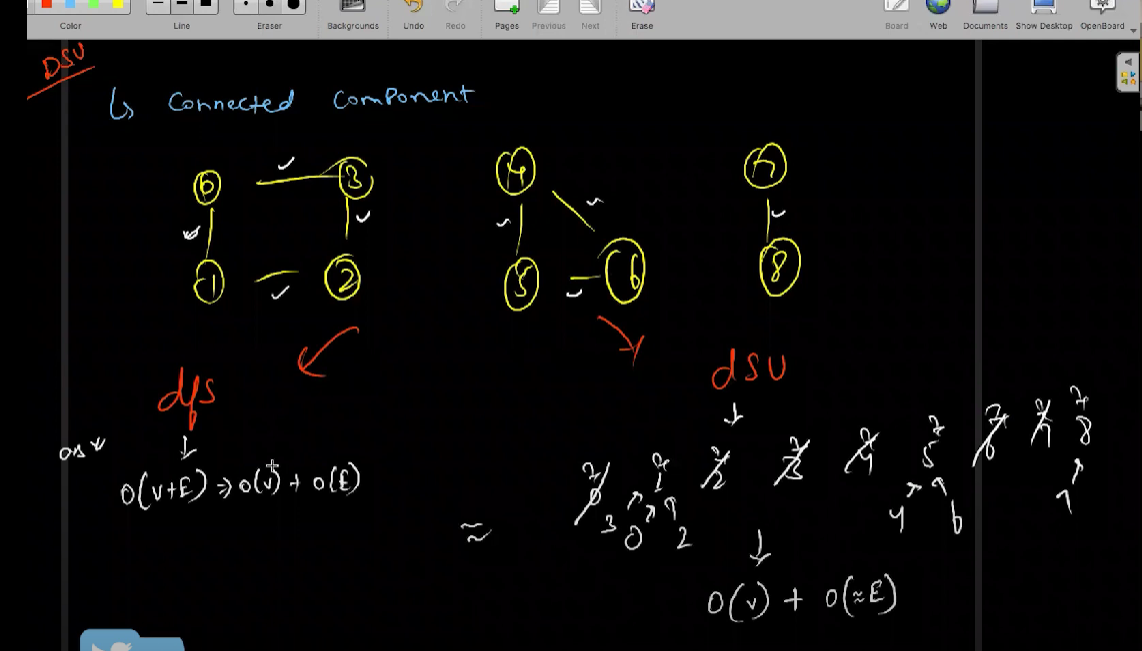 Color Line Eraser Backgrounds Undo Redo Pages Previous Next Erase Board Web Documents Show Desktop OpenBoard
DSU
↳ Connected Component
0 3 4 7
1 2 5 6 8
dfs dsu
O(V+E) ⇒ O(V) + O(E)
0 1 2 3 4 5 6 7 8
3 0 2 4 6 7
≈
O(V) + O(≈E)